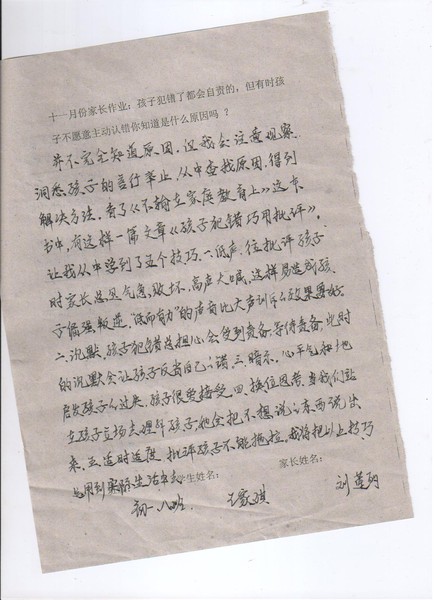 十一月份家长作业：孩子犯错了都会自责的，但有时孩
子不愿意主动认错你知道是什么原因吗？
并不完全知道原因，但我会注意观察
洞悉孩子的言行举止，从中查找原因，得到
解决方法，看了《不输在家庭教育上》这本
书中，有这样一篇文章《孩子犯错巧用批评》，
让我从中学到了五个技巧.一.低声.往批评孩子
时家长总是气急败坏，高声大喊，这样易造成孩
子倔强叛逆，"低而有力"的声音比大声训斥效果要好
二.沉默，孩子犯错总担心会受到责备，等待责备，此时
的沉默会让孩子反省自己的错.三.暗示.心平气和地
启发孩子，孩子很受接受.四.换位思考，当我们站
在孩子立场去理解孩子，他会把不想说的东西说出
来.五.适时适度.批评孩子不能拖拉，我将把以上技巧
运用到实际生活中去 学生姓名： 家长姓名：
初一.八班 王家琪 刘莲